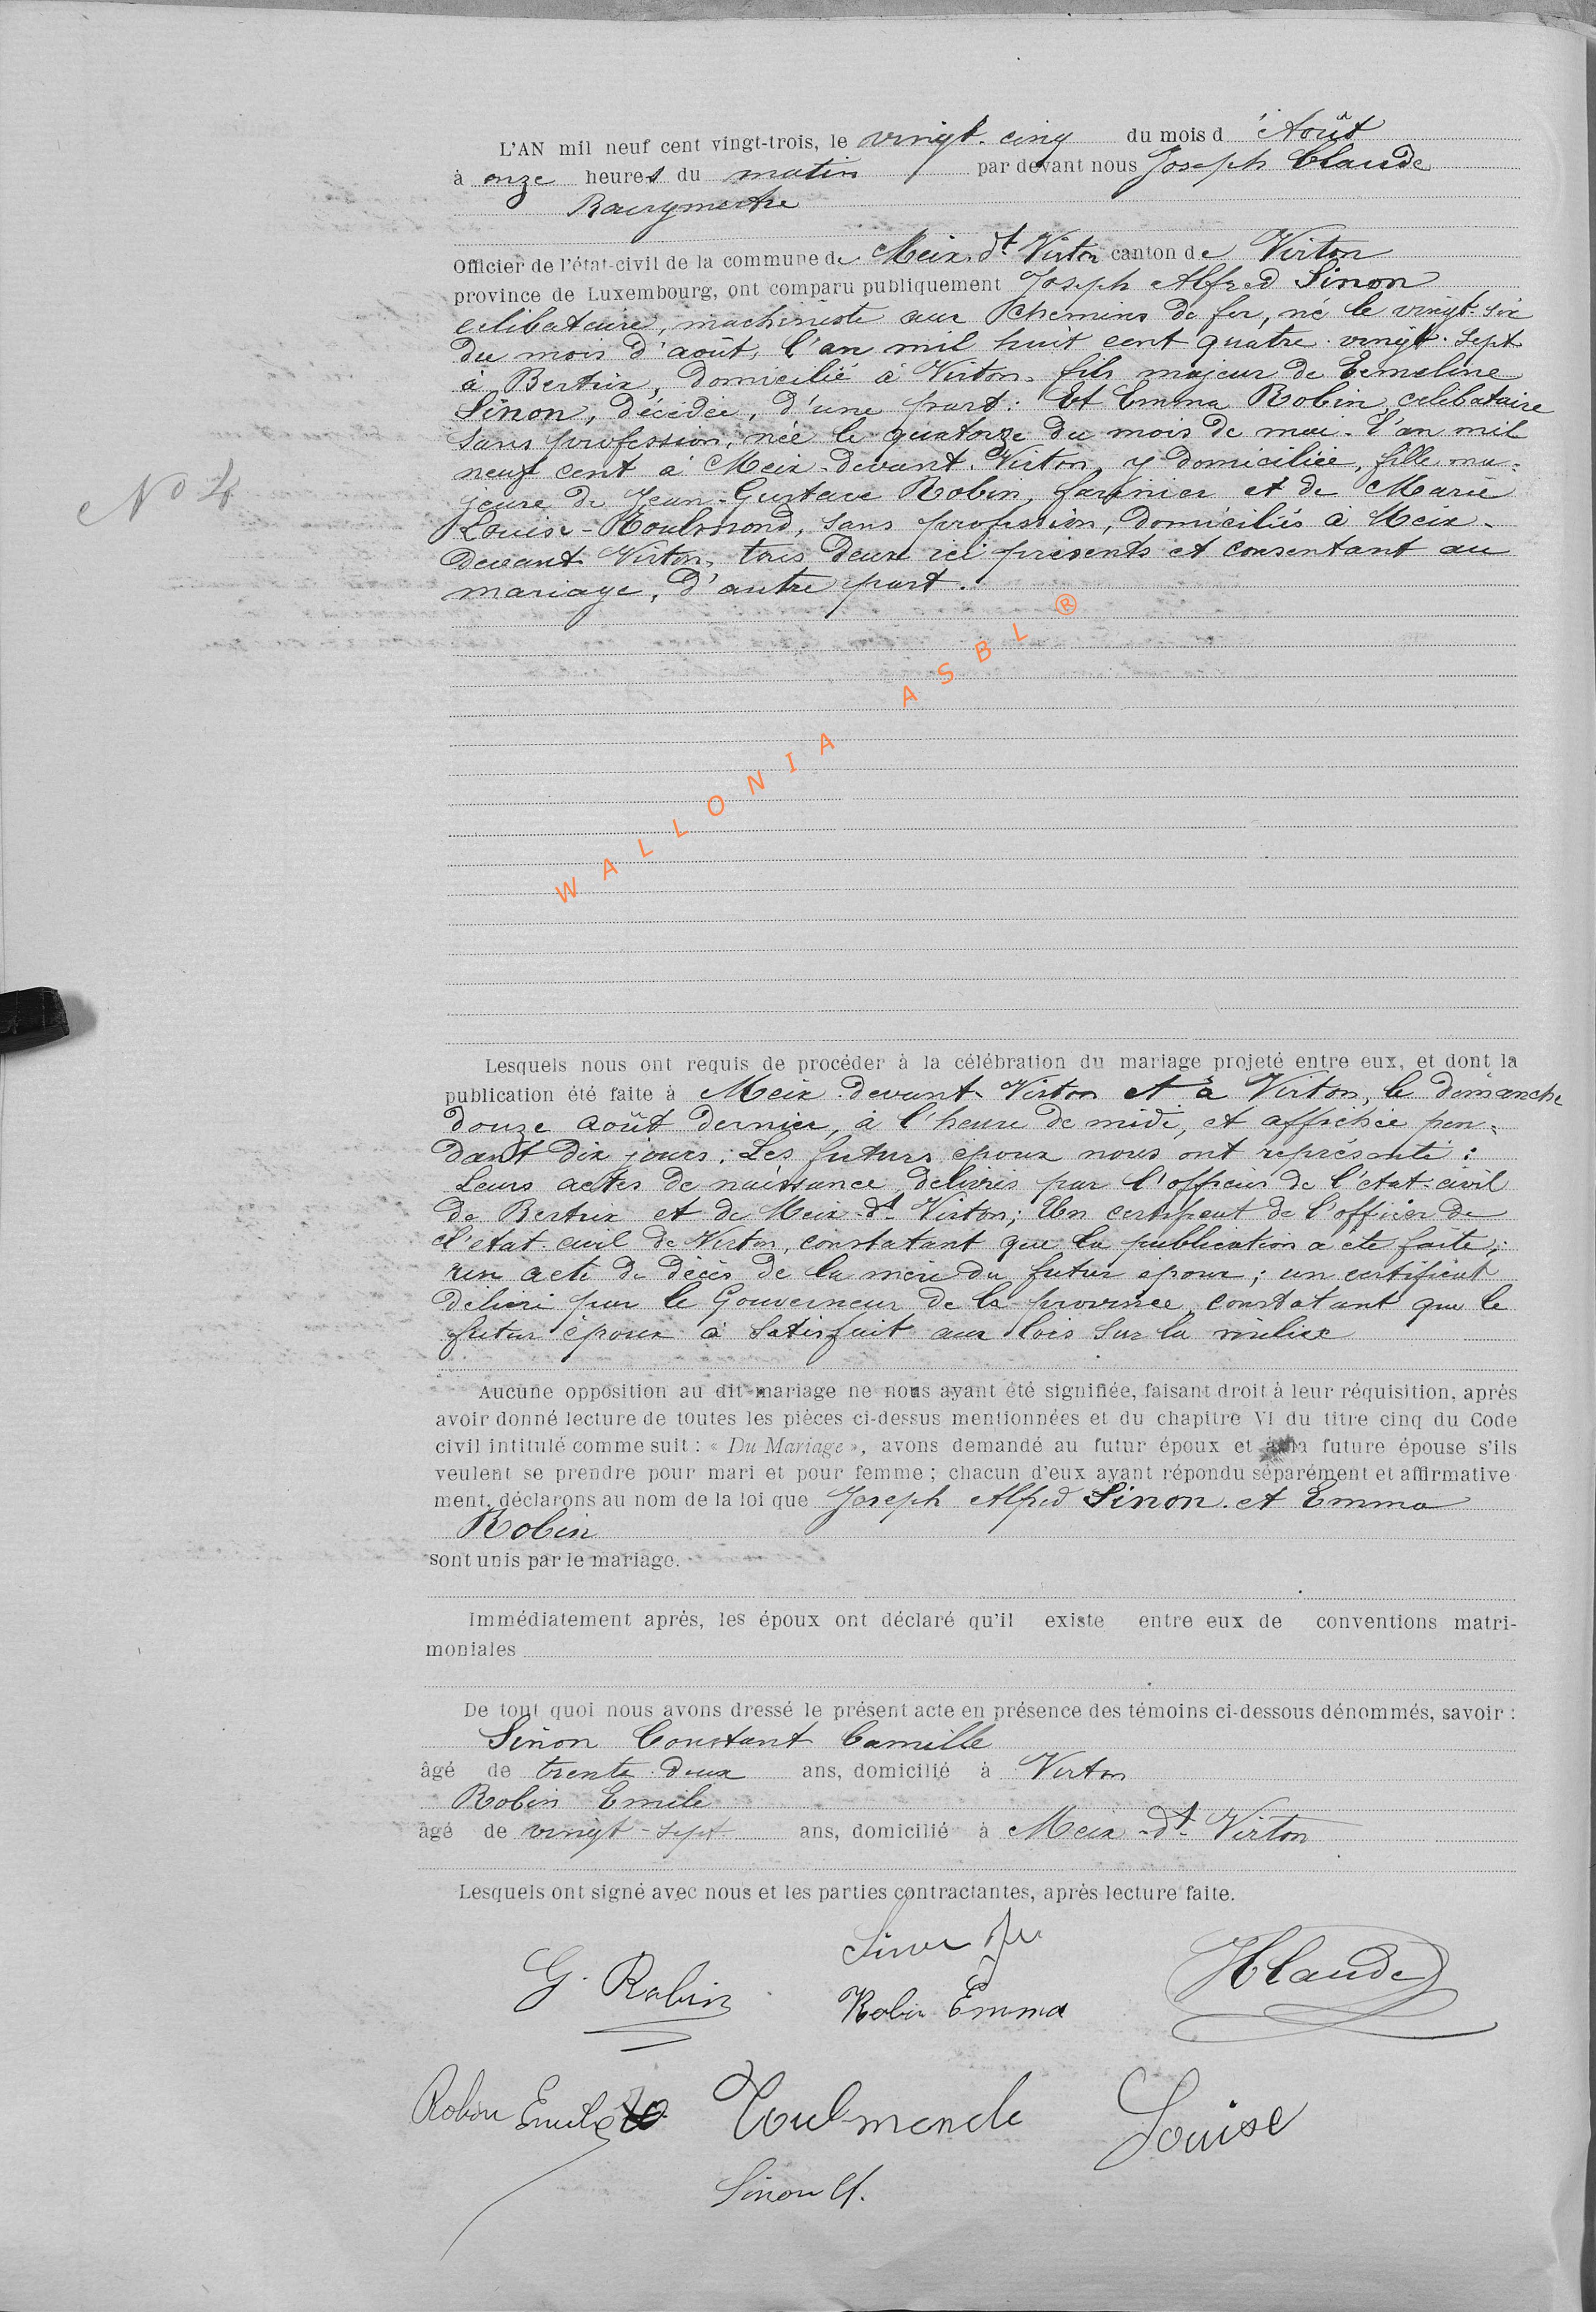 L'AN mil neuf cent vingt-trois, le vingt-cinq du mois d'Août
à onze heures du matin par devant nous Joseph Claude
Bourgmestre
Officier de l'état-civil de la commune de Meix-dt Virton canton de Virton
province de Luxembourg, ont comparu publiquement Joseph Alfred Sinon
célibataire, machiniste aux chemins de fer, né le vingt-six
du mois d'août, l'an mil huit cent quatre-vingt-sept
à Bertrix, domicilié à Virton, fils majeur de Eemeline
Sinon, décédée, d'une part: Et Emma Robin célibataire
sans profession, née le quatorze du mois de mai l'an mil
neuf cent à Meix-devant-Virton, y domiciliée, fille ma-
No 4
jeure de Jean-Gustave Robin, farinier et de Marie
Louise-Toulmond, sans profession, domiciliés à Meix-
devant Virton, tous deux ici présents et consentant au
mariage, d'autre part.
WALLONIA ASBL ®
Lesquels nous ont requis de procéder à la célébration du mariage projeté entre eux, et dont la
publication été faite à Meix-devant-Virton et à Virton, le dimanche
douze août dernier, à l'heure de midi, et affichée pen-
dant dix jours; Les futurs époux nous ont représenté:
Leurs actes de naissance délivrés par l'officier de l'état-civil
de Bertrix et de Meix-dt-Virton; Un certificat de l'officier de
l'état-civil de Virton, constatant que la publication a été faite;
un acte de décès de la mère du futur époux; un certificat
délivré par le Gouverneur de la province, constatant que le
futur époux a satisfait aux lois sur la milice
Aucune opposition au dit mariage ne nous ayant été signifiée, faisant droit à leur réquisition, après
avoir donné lecture de toutes les pièces ci-dessus mentionnées et du chapitre VI du titre cinq du Code
civil intitulé comme suit : « Du Mariage », avons demandé au futur époux et à la future épouse s'ils
veulent se prendre pour mari et pour femme ; chacun d'eux ayant répondu séparément et affirmative
ment, déclarons au nom de la loi que Joseph Alfred Sinon et Emma
Robin
sont unis par le mariage.
Immédiatement après, les époux ont déclaré qu'il existe entre eux de conventions matri-
moniales
De tout quoi nous avons dressé le présent acte en présence des témoins ci-dessous dénommés, savoir :
Sinon Constant Camille
âgé de trente-deux ans, domicilié à Virton
Robin Emile
âgé de vingt-sept ans, domicilié à Meix-dt-Virton
Lesquels ont signé avec nous et les parties contractantes, après lecture faite.
Sinon
G. Robin JClaude
Robin Emma
Robin Emile Toulmonde Louise
Sinon C.